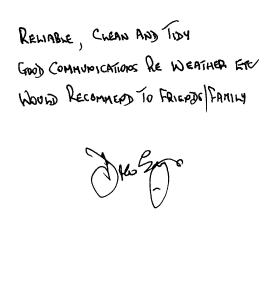 RELIABLE, CLEAN AND TIDY
GOOD COMMUNICATIONS RE WEATHER ETC
WOULD RECOMMEND TO FRIENDS/FAMILY